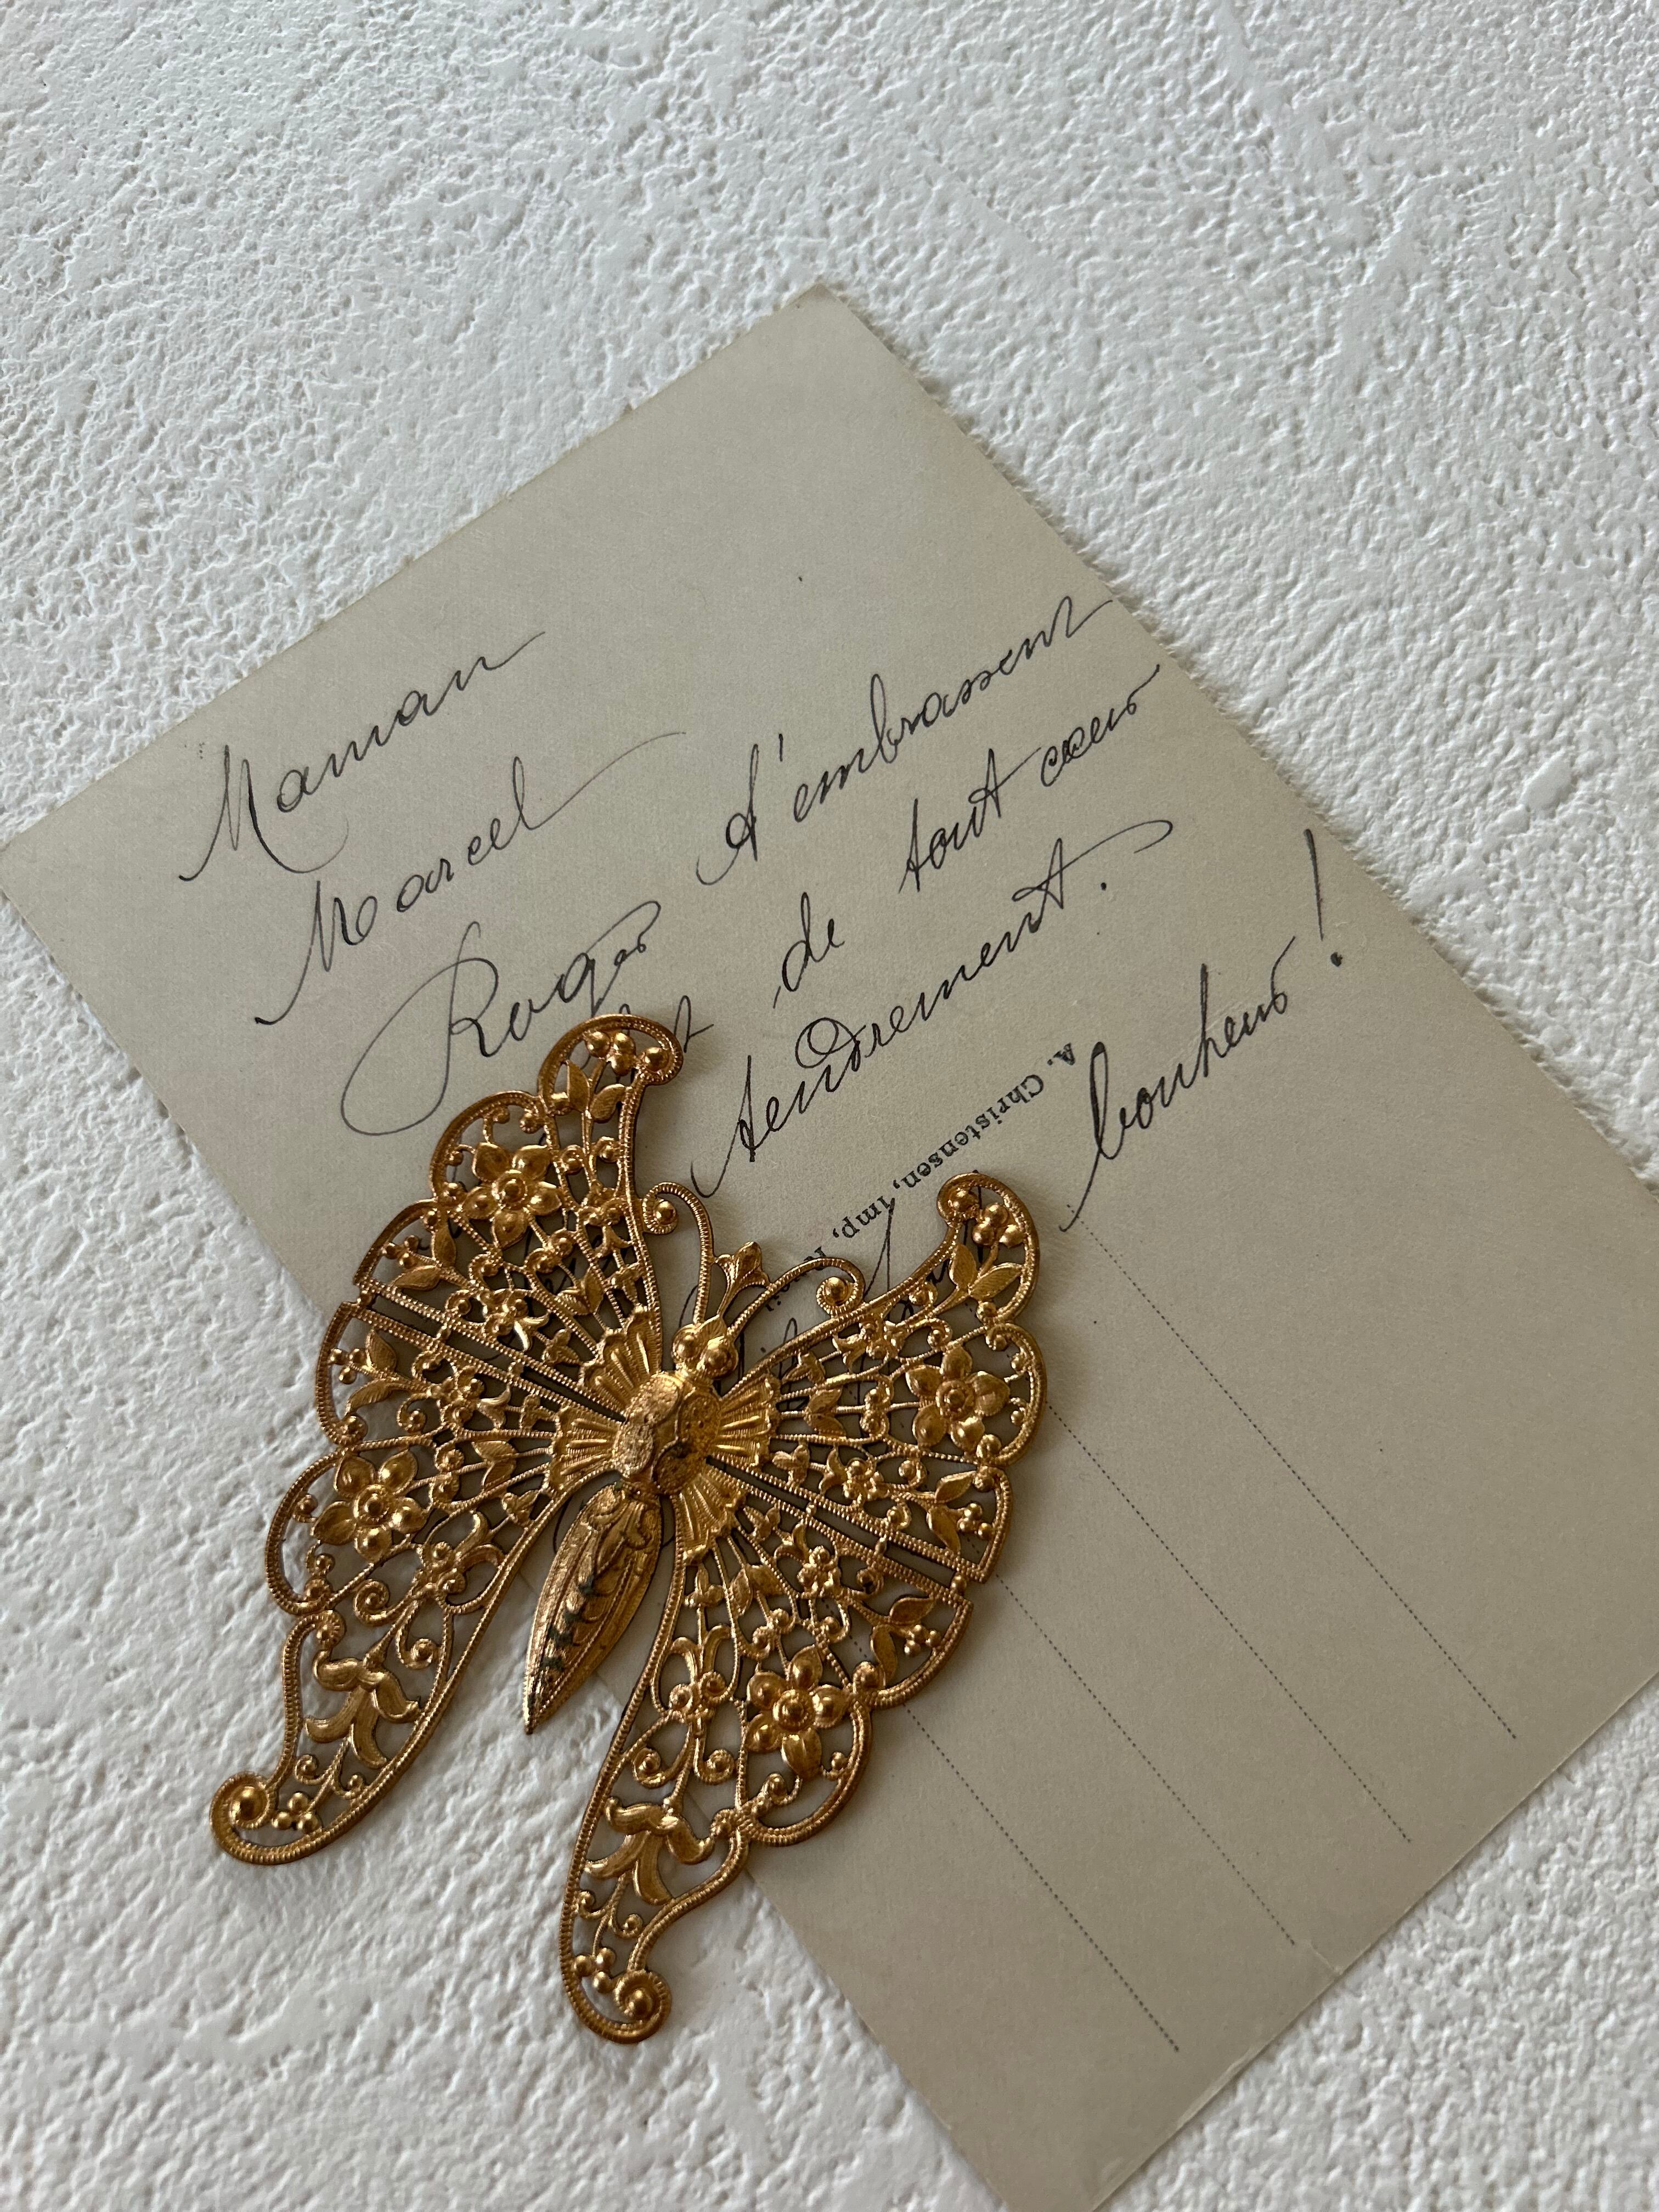 Maman
Marcel
Roger t'embrassent
de tout cœur
tendrement.
bonheur!
A. Christensen, Imp,